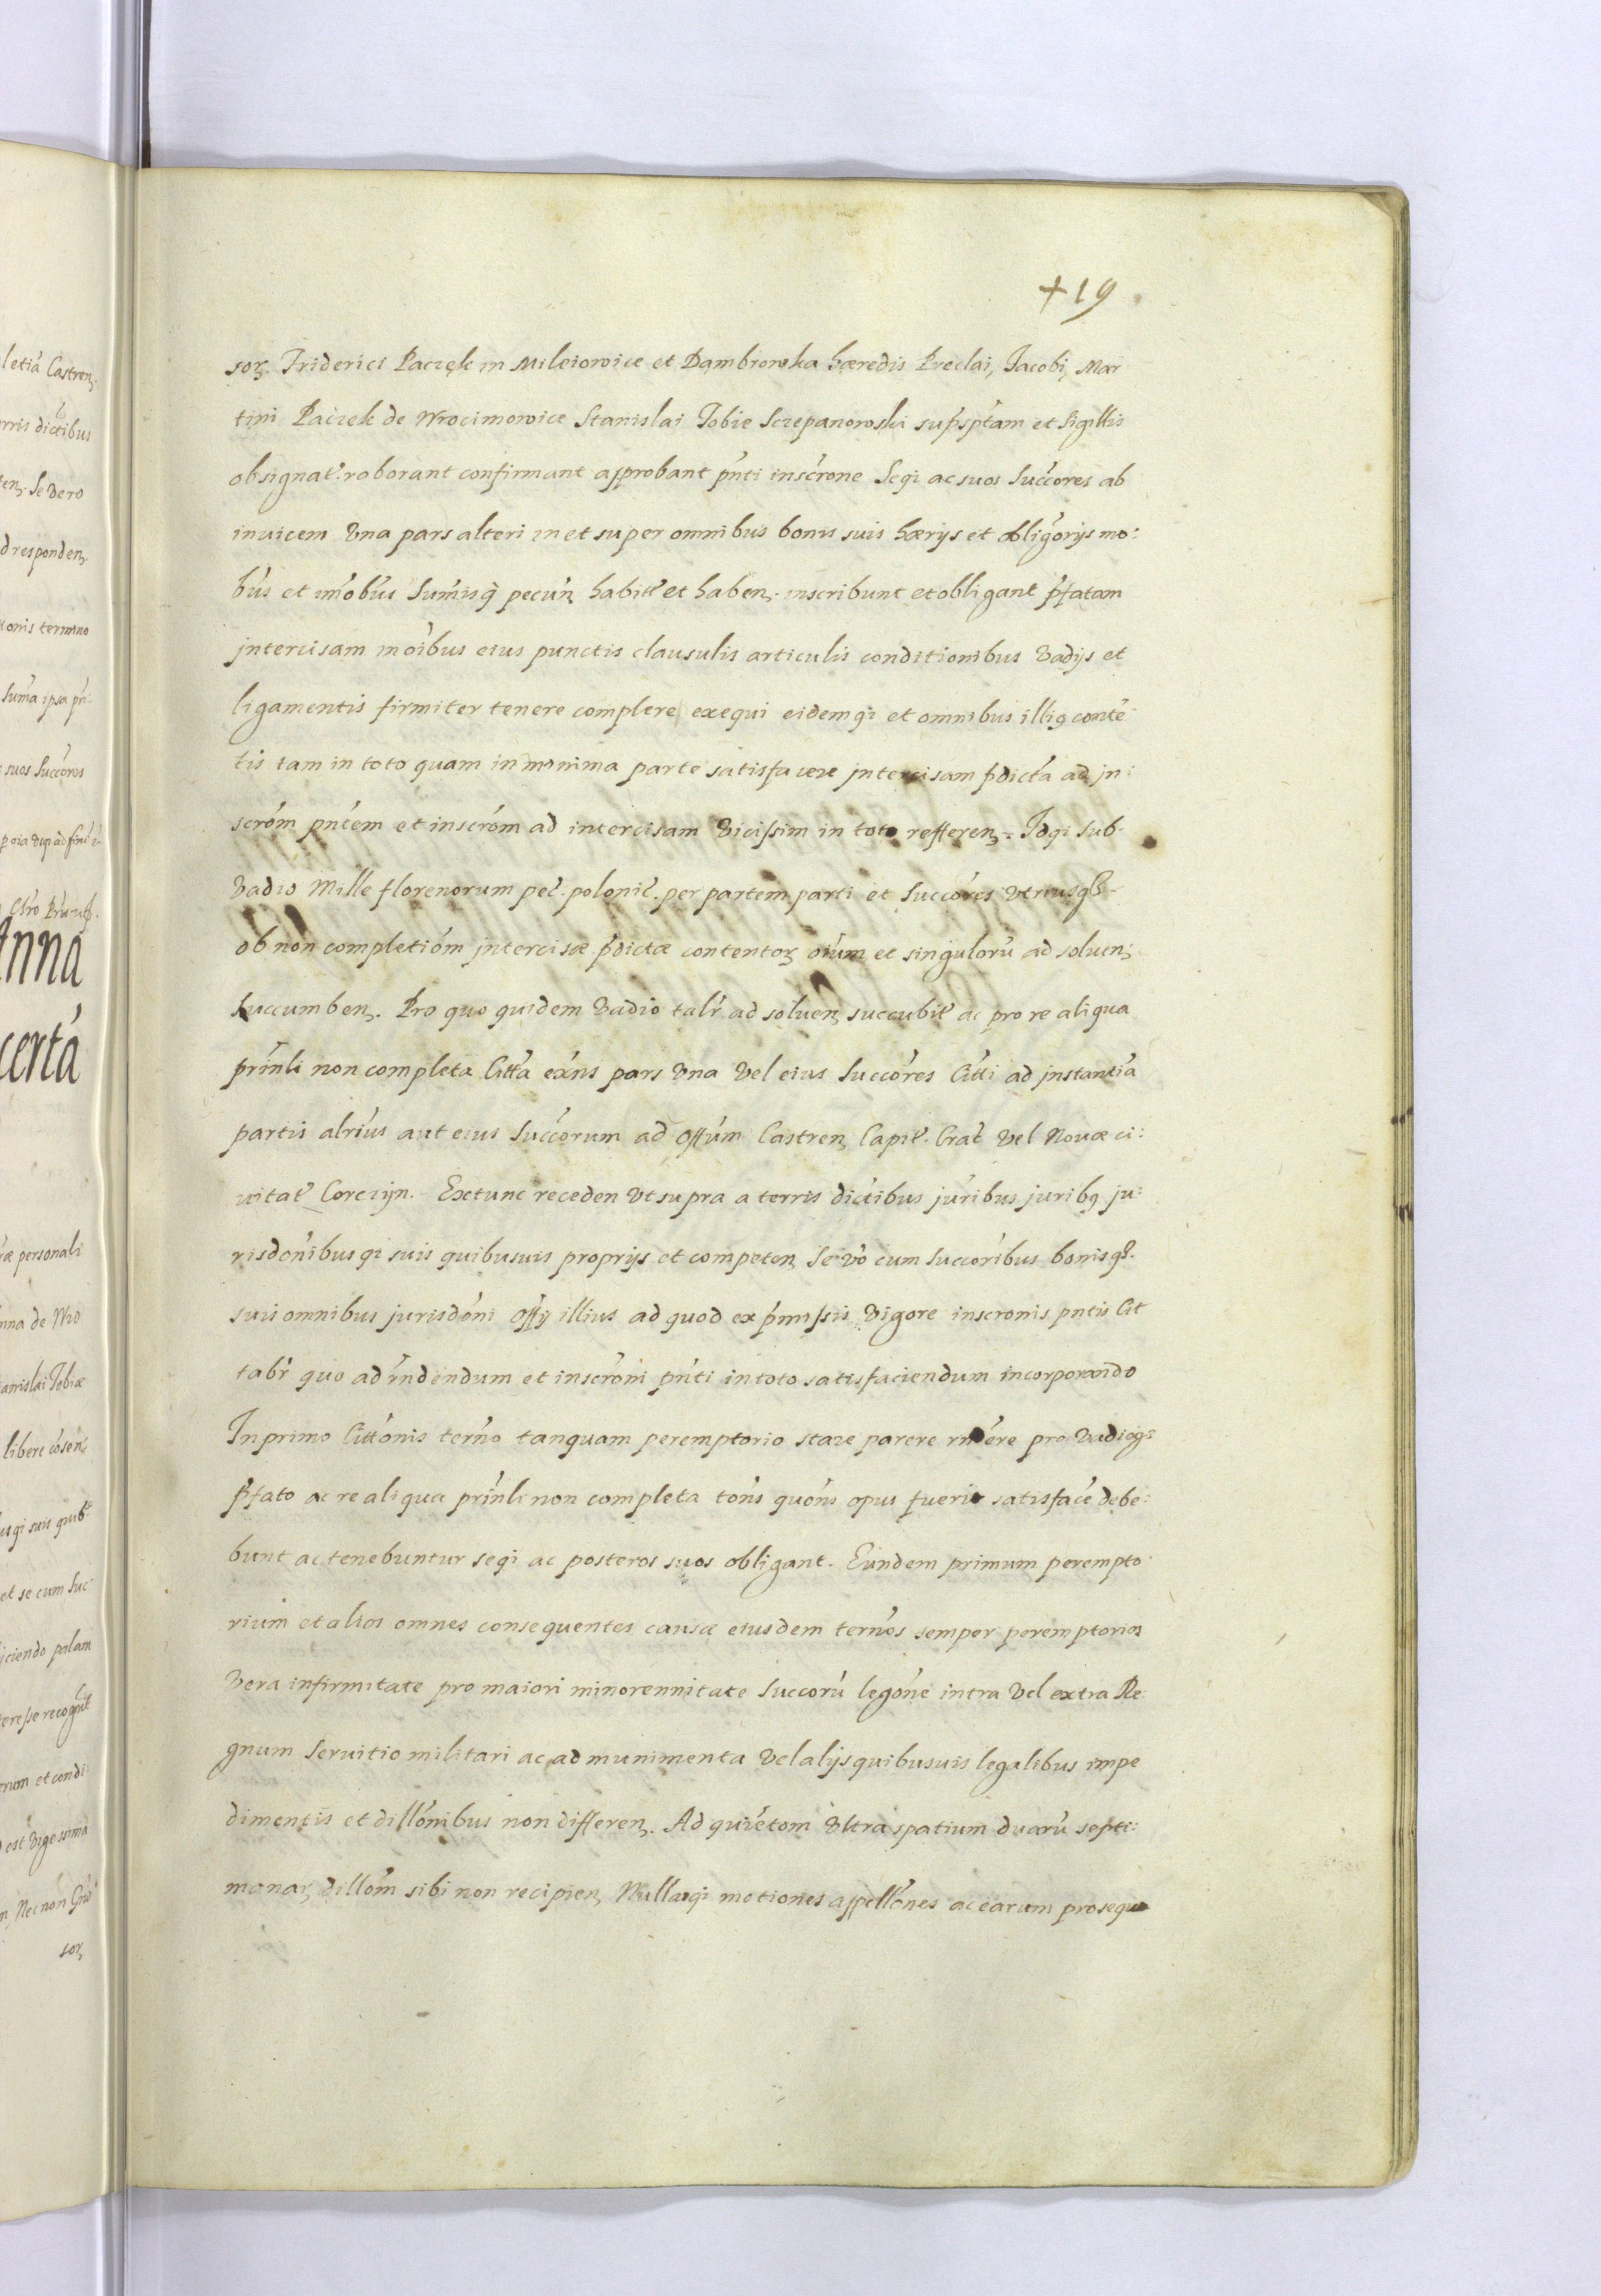 letiá Castren.
rris dictibus
en. Se vero
d responden.
onis termino
Suma ipsa pri
suos Succores
Anna
certá
personali
nna de Wro
anislai Tobiæ
libere
et se cum Suc
iciendo palam
rum et condi
est Vigesima
Necnon
soꝝ
+19
soꝝ Friderici Paczek in Mileiowice et Dambrowka hæredis Preclai, Jacobi, Mar
tini Paczek de Wrocimowice Stanislai Tobie Sczepanowski supsptam et Sigillis
obsignat. roborant confirmant approbant pnti inscrone Seqi ac suos Succores ab
inuicem Vna pars alteri in et super omnibus bonis suis hærijs et obligorijs mo:
bus et imobus Sumisq pecun habit et haben. inscribunt et obligant pfatam
jntercisam in oibus eius punctis clausulis articulis conditionibus Vadijs et
ligamentis firmiter tenere complere exequi eidemqi et omnibus illiq conte
tis tam in toto quam in minima parte satisfacere jntercisam pdicta ad jn:
scrom pntem et inscrom ad intercisam Vicissim in toto refferen. Idqi Sub
Vadio Mille florenorum pec. polonic. per partem parti et Succores Vtriusqȝ
ob non completiom jntercisæ pdictæ contentoꝝ oium et singuloru ad soluen
succumben. Pro quo quidem Vadio talr ad soluen succubit ac pro re aliqua
prinli non completa Citta exns pars Vna Vel eius Succores Citti ad jnstantia
partis alrius aut eius Succorum ad Offum Castren Capit. Crac Vel Nouæ ci:
uitat Corczijn. Extunc receden Vt supra a terris dictibus juribus juribq ju:
risdonibusqi suis quibusuis proprijs et competen Se vo cum Succoribus bonisqȝ
suis omnibus jurisdoni Offij illius ad quod ex pmissis Vigore inscronis pntis Cit
tabr quo ad rndendum et inscroni pnti in toto satisfaciendum incorporando
In primo Cittonis terno tanquam peremptorio stare parere rndere pro Vadioqȝ
pfato ac re aliqua prinli non completa tons quons opus fuerit satisface debe:
bunt ac tenebuntur seqi ac posteros suos obligant. Eundem primum perempto
rium et alios omnes consequentes causæ eiusdem ternos semper peremptorios
Vera infirmitate pro maiori minorennitate Succoru legone intra Vel extra Re
gnum Seruitio militari ac ad munimenta Vel alijs quibusuis legalibus impe
dimentis et dillonibus non differen. Ad quietom Vltra spatium duaru septi:
manaꝝ dillom sibi non recipien Nullasqi motiones appellones ac earum prosequ